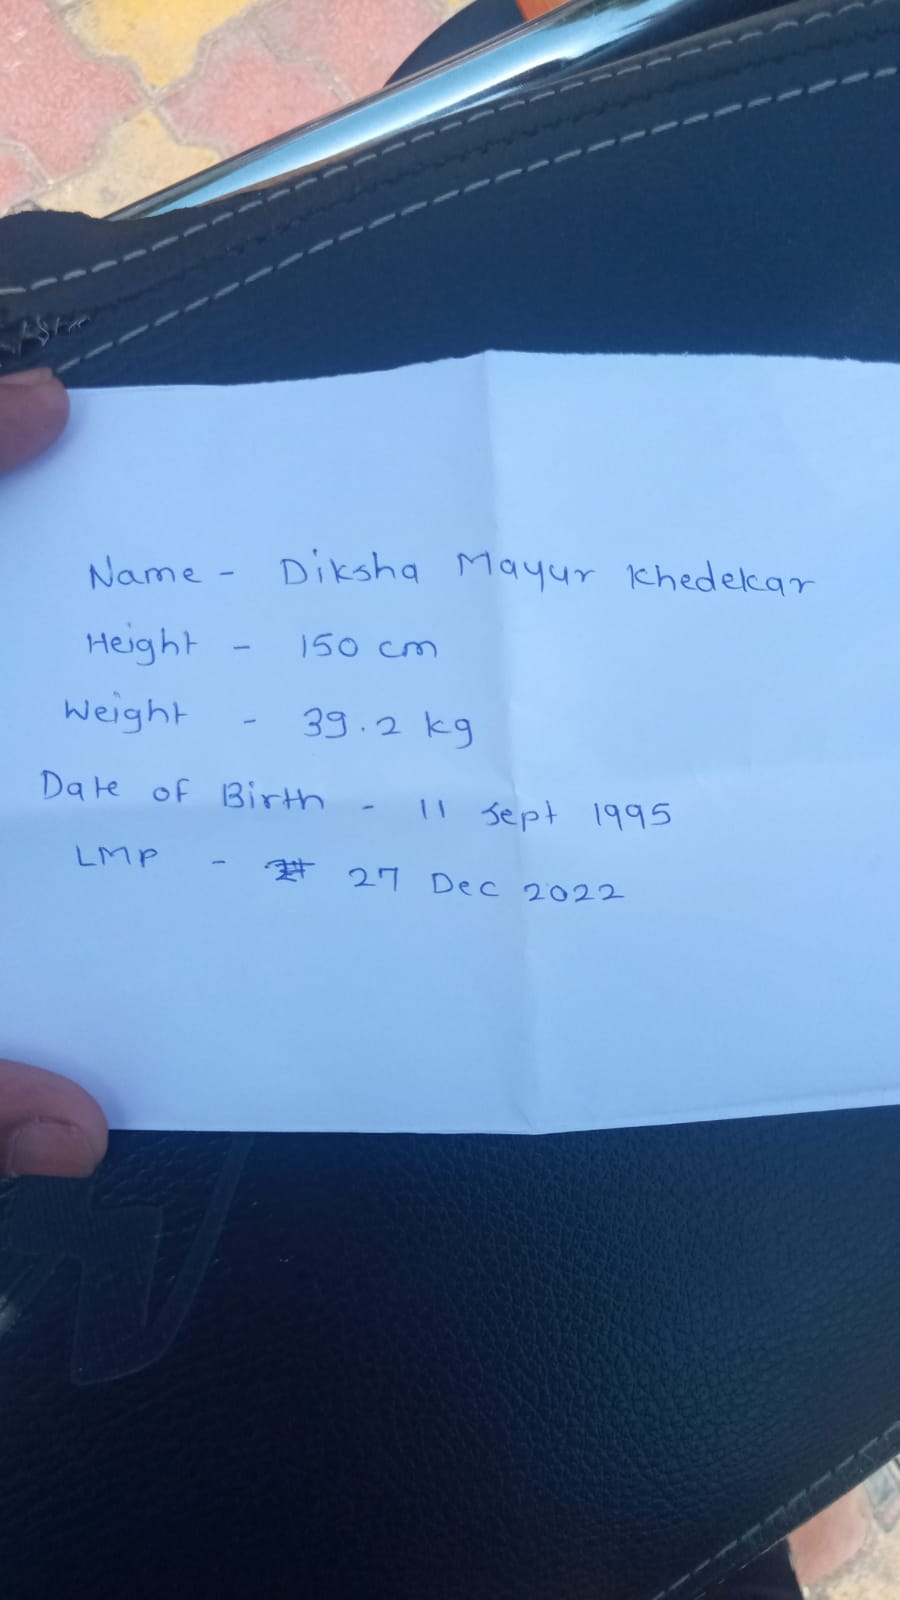 Name - Diksha Mayur Khedekar
Height - 150 cm
Weight - 39.2 kg
Date of Birth - 11 Sept 1995
LMP - 27 Dec 2022